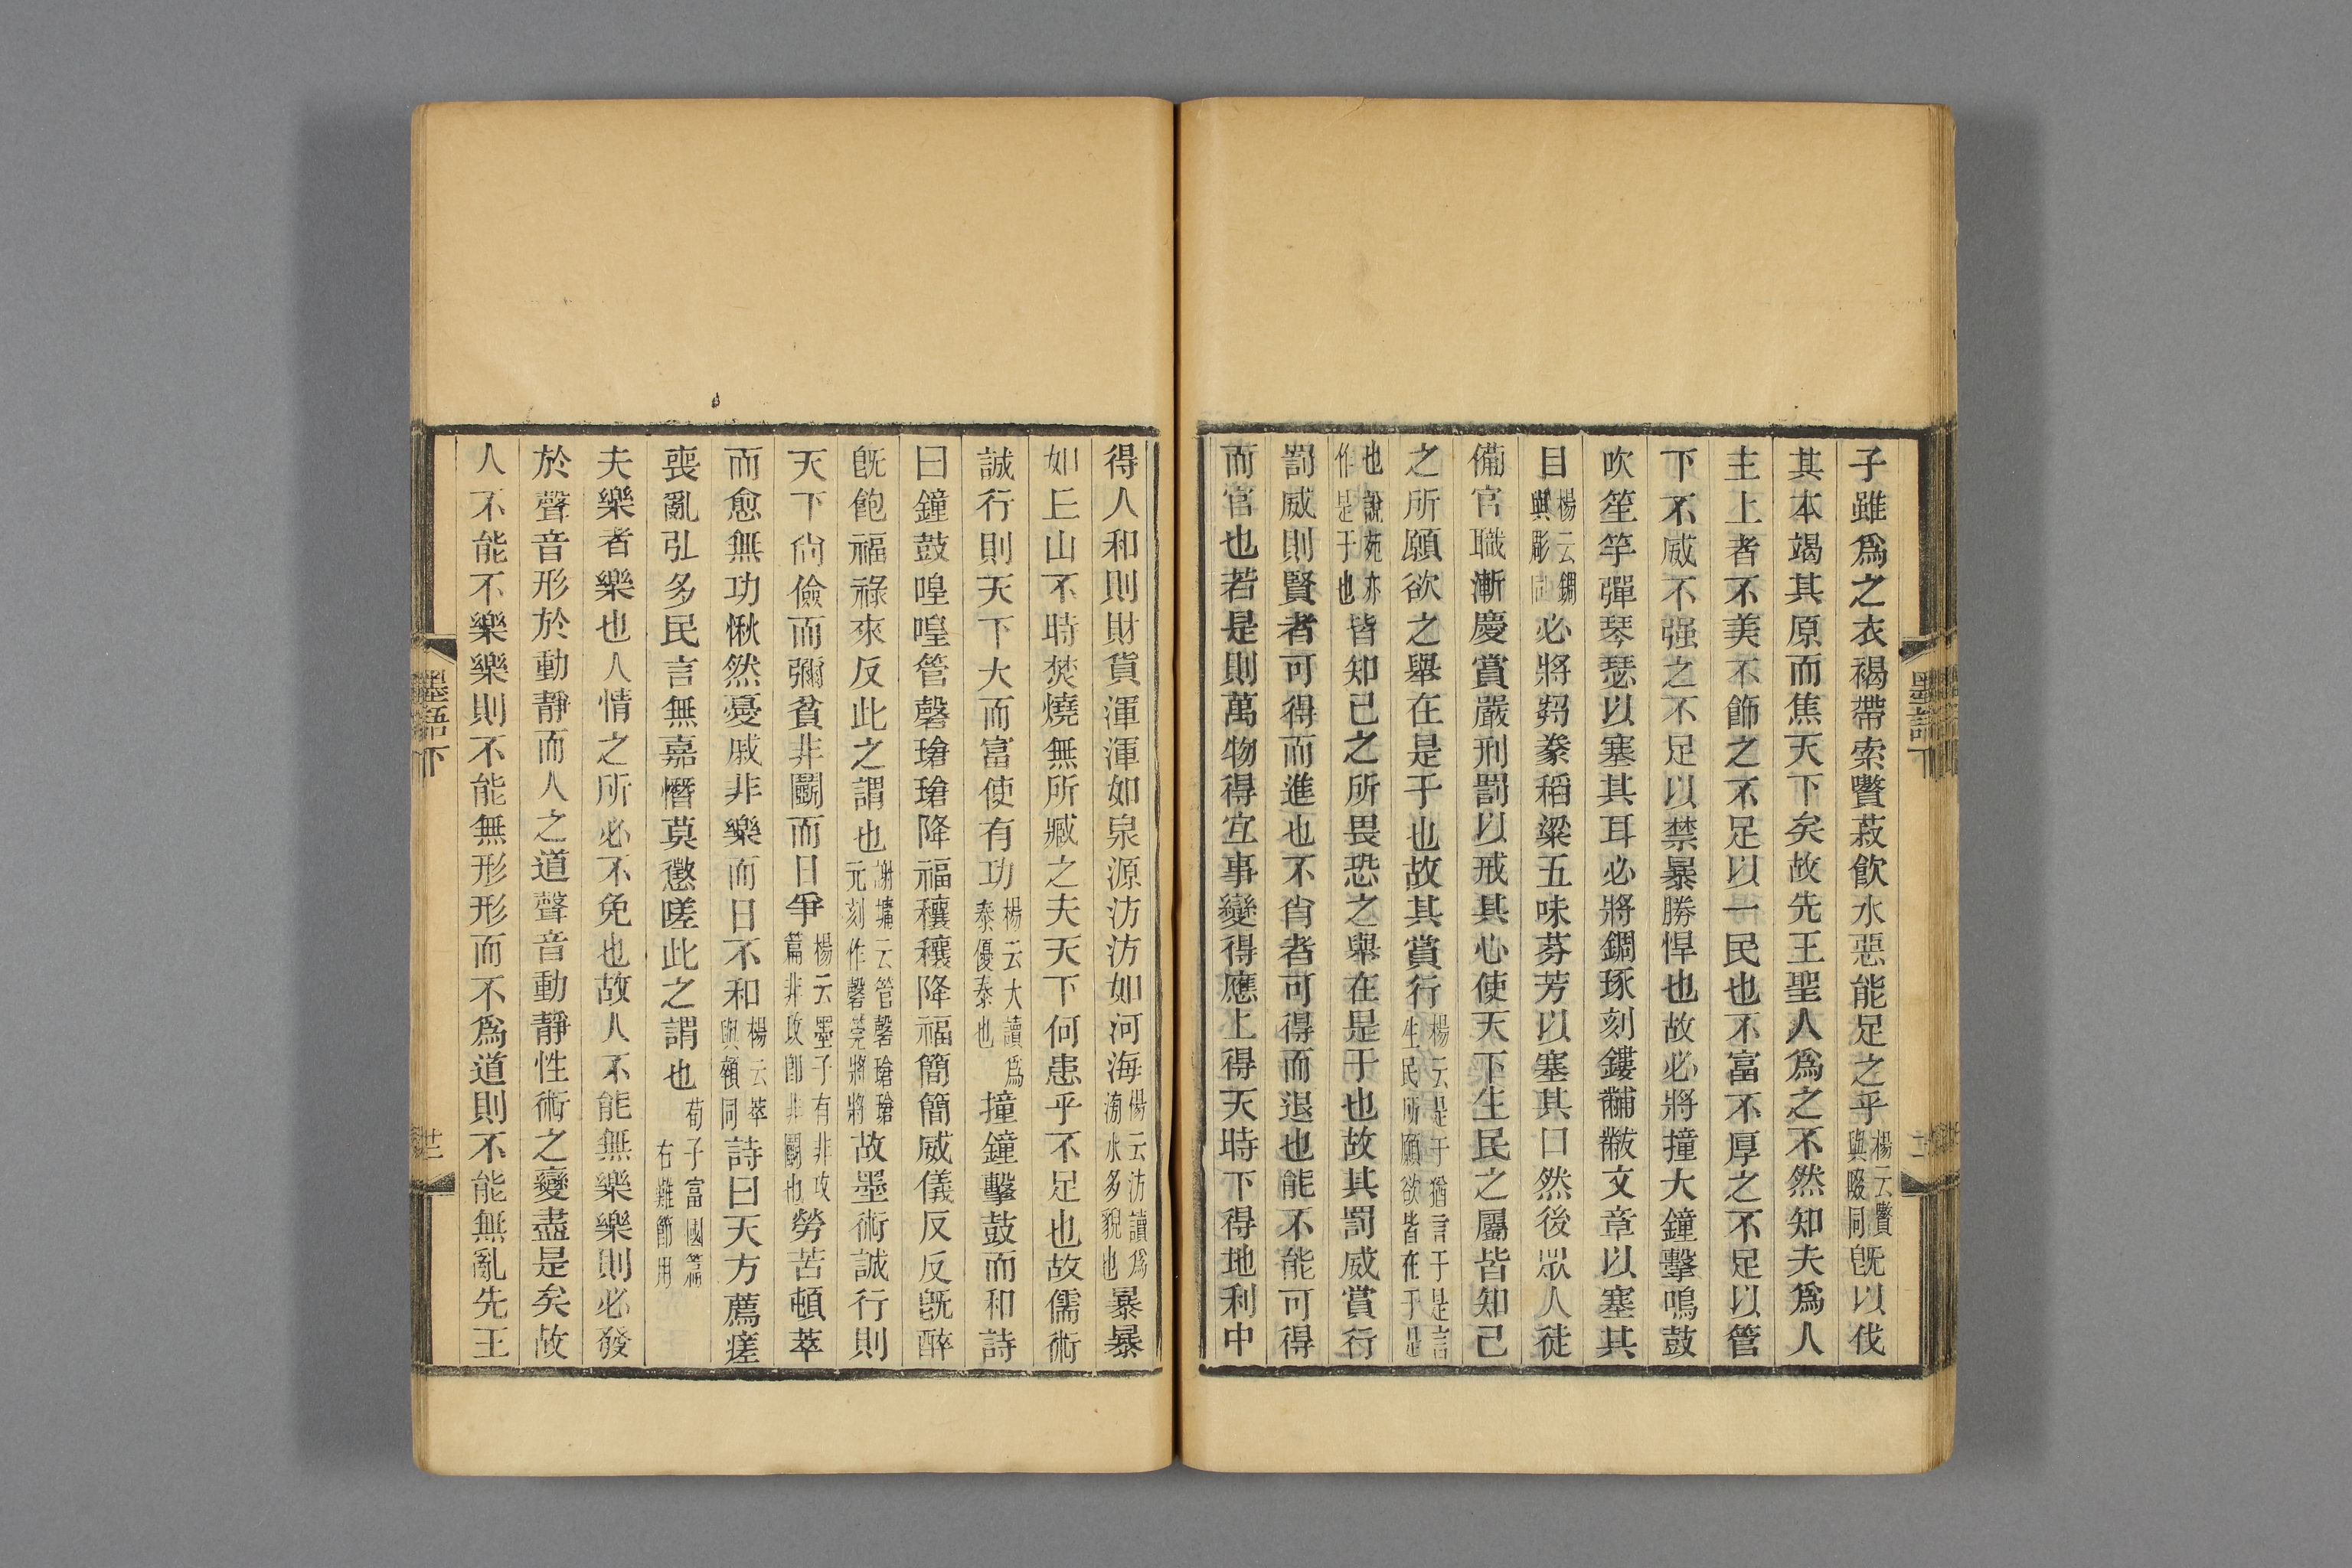 子雖爲之衣褐帶索嚽菽飮水惡能足之乎楊云嚽與啜同旣以伐
其本竭其原而焦天下矣故先王聖人爲之不然知夫爲人
主上者不美不飾之不足以一民也不富不厚之不足以管
下不威不强之不足以禁暴勝悍也故必將撞大鐘擊鳴鼓
吹笙竽彈琴瑟以塞其耳必將錭琢刻鏤黼黻文章以塞其
目楊云錭與彫同必將芻豢稻粱五味芬芳以塞其口然後眾人徒
備官職漸慶賞嚴刑罰以戒其心使天下生民之屬皆知己
之所願欲之舉在是于也故其賞行楊云是于猶言于是言生民所願欲皆在于是
也說苑亦作是于也皆知己之所畏恐之舉在是于也故其罰威賞行
罰威則賢者可得而進也不肖者可得而退也能不能可得
而官也若是則萬物得宜事變得應上得天時下得地利中
得人和則財貨渾渾如泉源汸汸如河海楊云汸讀爲滂水多貌也暴暴
如丘山不時焚燒無所臧之夫天下何患乎不足也故儒術
誠行則天下大而富使有功楊云大讀爲泰優泰也撞鐘擊鼓而和詩
曰鐘鼓喤喤管磬瑲瑲降福穰穰降福簡簡威儀反反旣醉
旣飽福祿來反此之謂也謝墉云管磬瑲瑲元刻作磬筦將將故墨術誠行則
天下尙儉而彌貧非鬭而日爭楊云墨子有非攻篇非攻卽非鬭也勞苦頓萃
而愈無功愀然憂戚非樂而日不和楊云萃與顇同詩曰天方薦瘥
喪亂弘多民言無嘉憯莫懲嗟此之謂也荀子富國篇右難節用
夫樂者樂也人情之所必不免也故人不能無樂樂則必發
於聲音形於動靜而人之道聲音動靜性術之變盡是矣故
人不能不樂樂則不能無形形而不爲道則不能無亂先王
墨語下